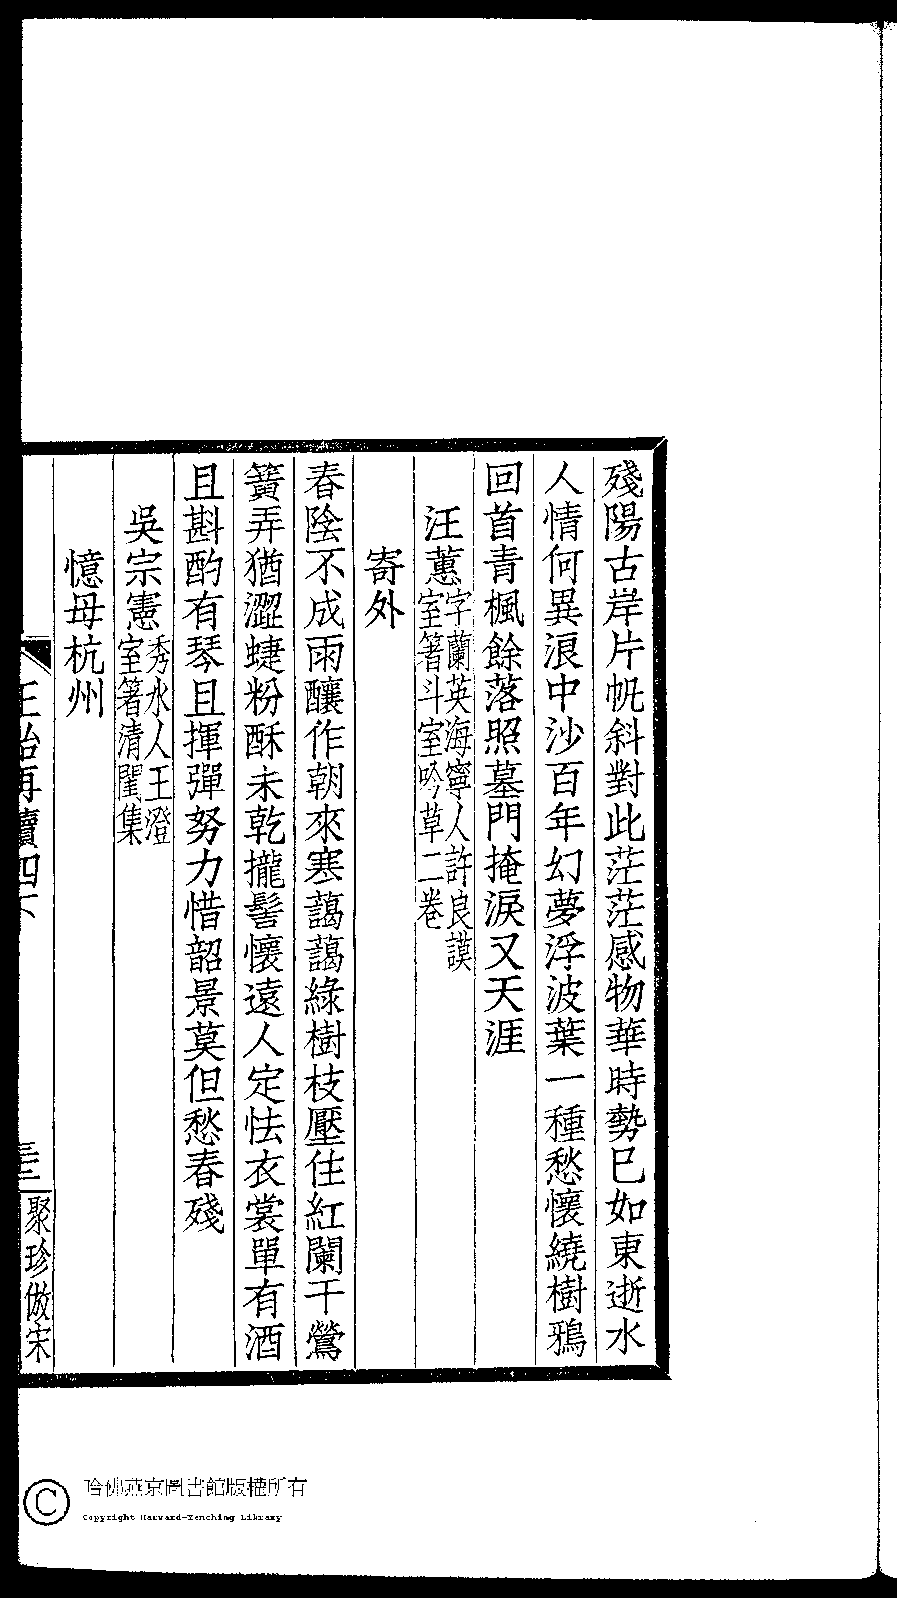 殘陽古岸片帆斜對此茫茫感物華時勢已如東逝水
人情何異浪中沙百年幻夢浮波葉一種愁懷繞樹鴉
回首青楓餘落照墓門掩淚又天涯
汪蕙字蘭英海寧人許良謨
室箸斗室吟草二卷
寄外
春陰不成雨釀作朝來寒藹藹綠樹枝壓住紅闌干鶯
簧弄猶澀蜨粉酥未乾攏髻懷遠人定怯衣裳單有酒
且斟酌有琴且揮彈努力惜韶景莫但愁春殘
吳宗憲秀水人王澄
室箸清閨集
憶母杭州
再續四下
聚珍倣宋
哈佛燕京圖書館版權所有
Copyright Harvard-Yenching Library